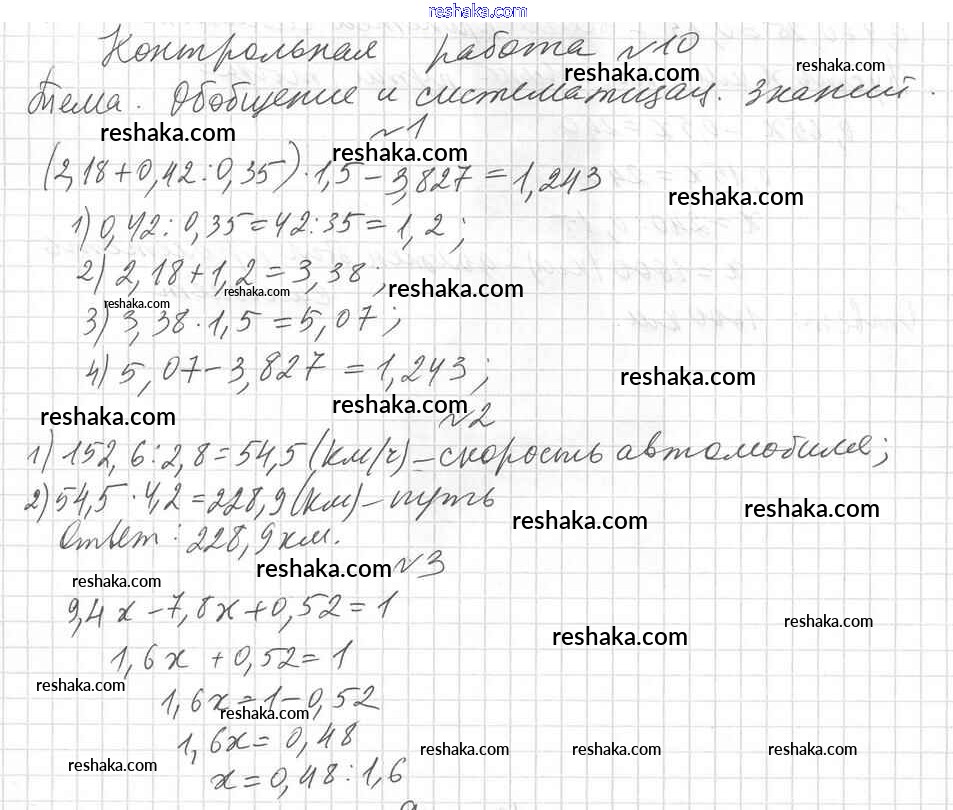 reshaka.com
Контрольная работа №10
reshaka.com reshaka.com
Тема. Обобщение и систематизац. знаний.
reshaka.com
№1
reshaka.com
(2,18+0,42:0,35)·1,5-3,827=1,243
reshaka.com
1) 0,42:0,35=42:35=1,2;
2) 2,18+1,2=3,38;
reshaka.com reshaka.com reshaka.com
3) 3,38·1,5=5,07;
4) 5,07-3,827=1,243;
reshaka.com
reshaka.com reshaka.com
№2
1) 152,6:2,8=54,5 (км/ч) - скорость автомобиля;
2) 54,5·4,2=228,9 (км) - путь
reshaka.com reshaka.com
Ответ: 228,9 км.
reshaka.com №3
reshaka.com
9,4x-7,8x+0,52=1
reshaka.com reshaka.com
1,6x+0,52=1
reshaka.com
1,6x=1-0,52
reshaka.com
1,6x=0,48
reshaka.com reshaka.com reshaka.com reshaka.com
x=0,48:1,6